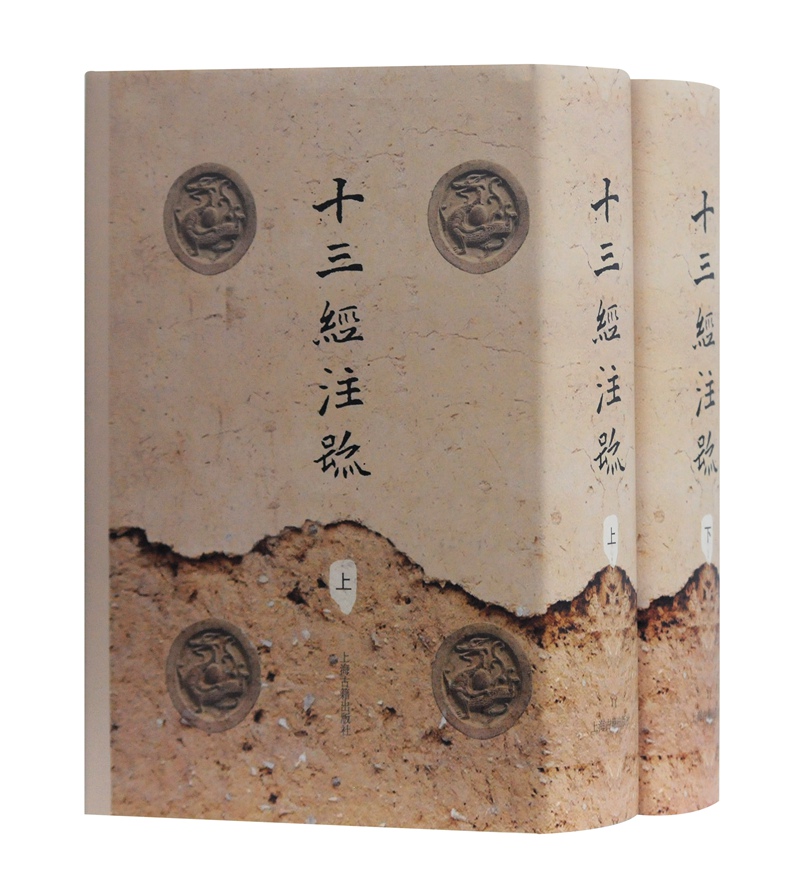 十三經注疏
上
上海古籍出版社
十三經注疏
上
十三經注疏
下